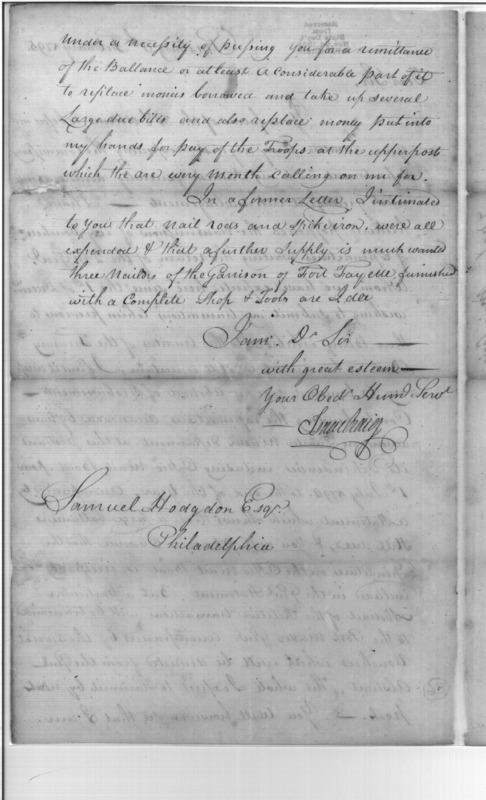 under a necessity of pressing you for a remittance
of the Ballance or at least a Considerable part of it
to replace monies borrowed and take up several
Large due bills and also replace money put into
my hands for pay of the Troops at the upper post
which the are every Month Calling on me for.
In a former Letter, I intimated
to you that nail rods and Spike iron, were all
expended & that a further Supply is much wanted
three Nailers of the Garrison of Fort Fayette furnished
with a Complete Shop & Tools are Idle
I am. Dr Sir
with great esteem
Your Obedt Humb Servt
Isaac Craig
Samuel Hodgdon Esqr.
Philadelphia